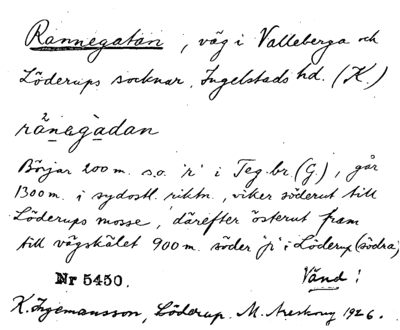 Rannegatan, väg i Valleberga och
Löderups socknar, Ingelstads hd. (K.)
rä̀negàdan
Börjar 200 m. s.o. 'r' i Teg.br. (G.), går
1300 m. i sydostl. riktn., viker söderut till
Löderups mosse, därefter österut fram
till vägskälet 900 m. söder 'p' i Löderup (södra)
Nr 5450.
Vänd!
K. Ingemansson, Löderup. M. Areskog 1926.